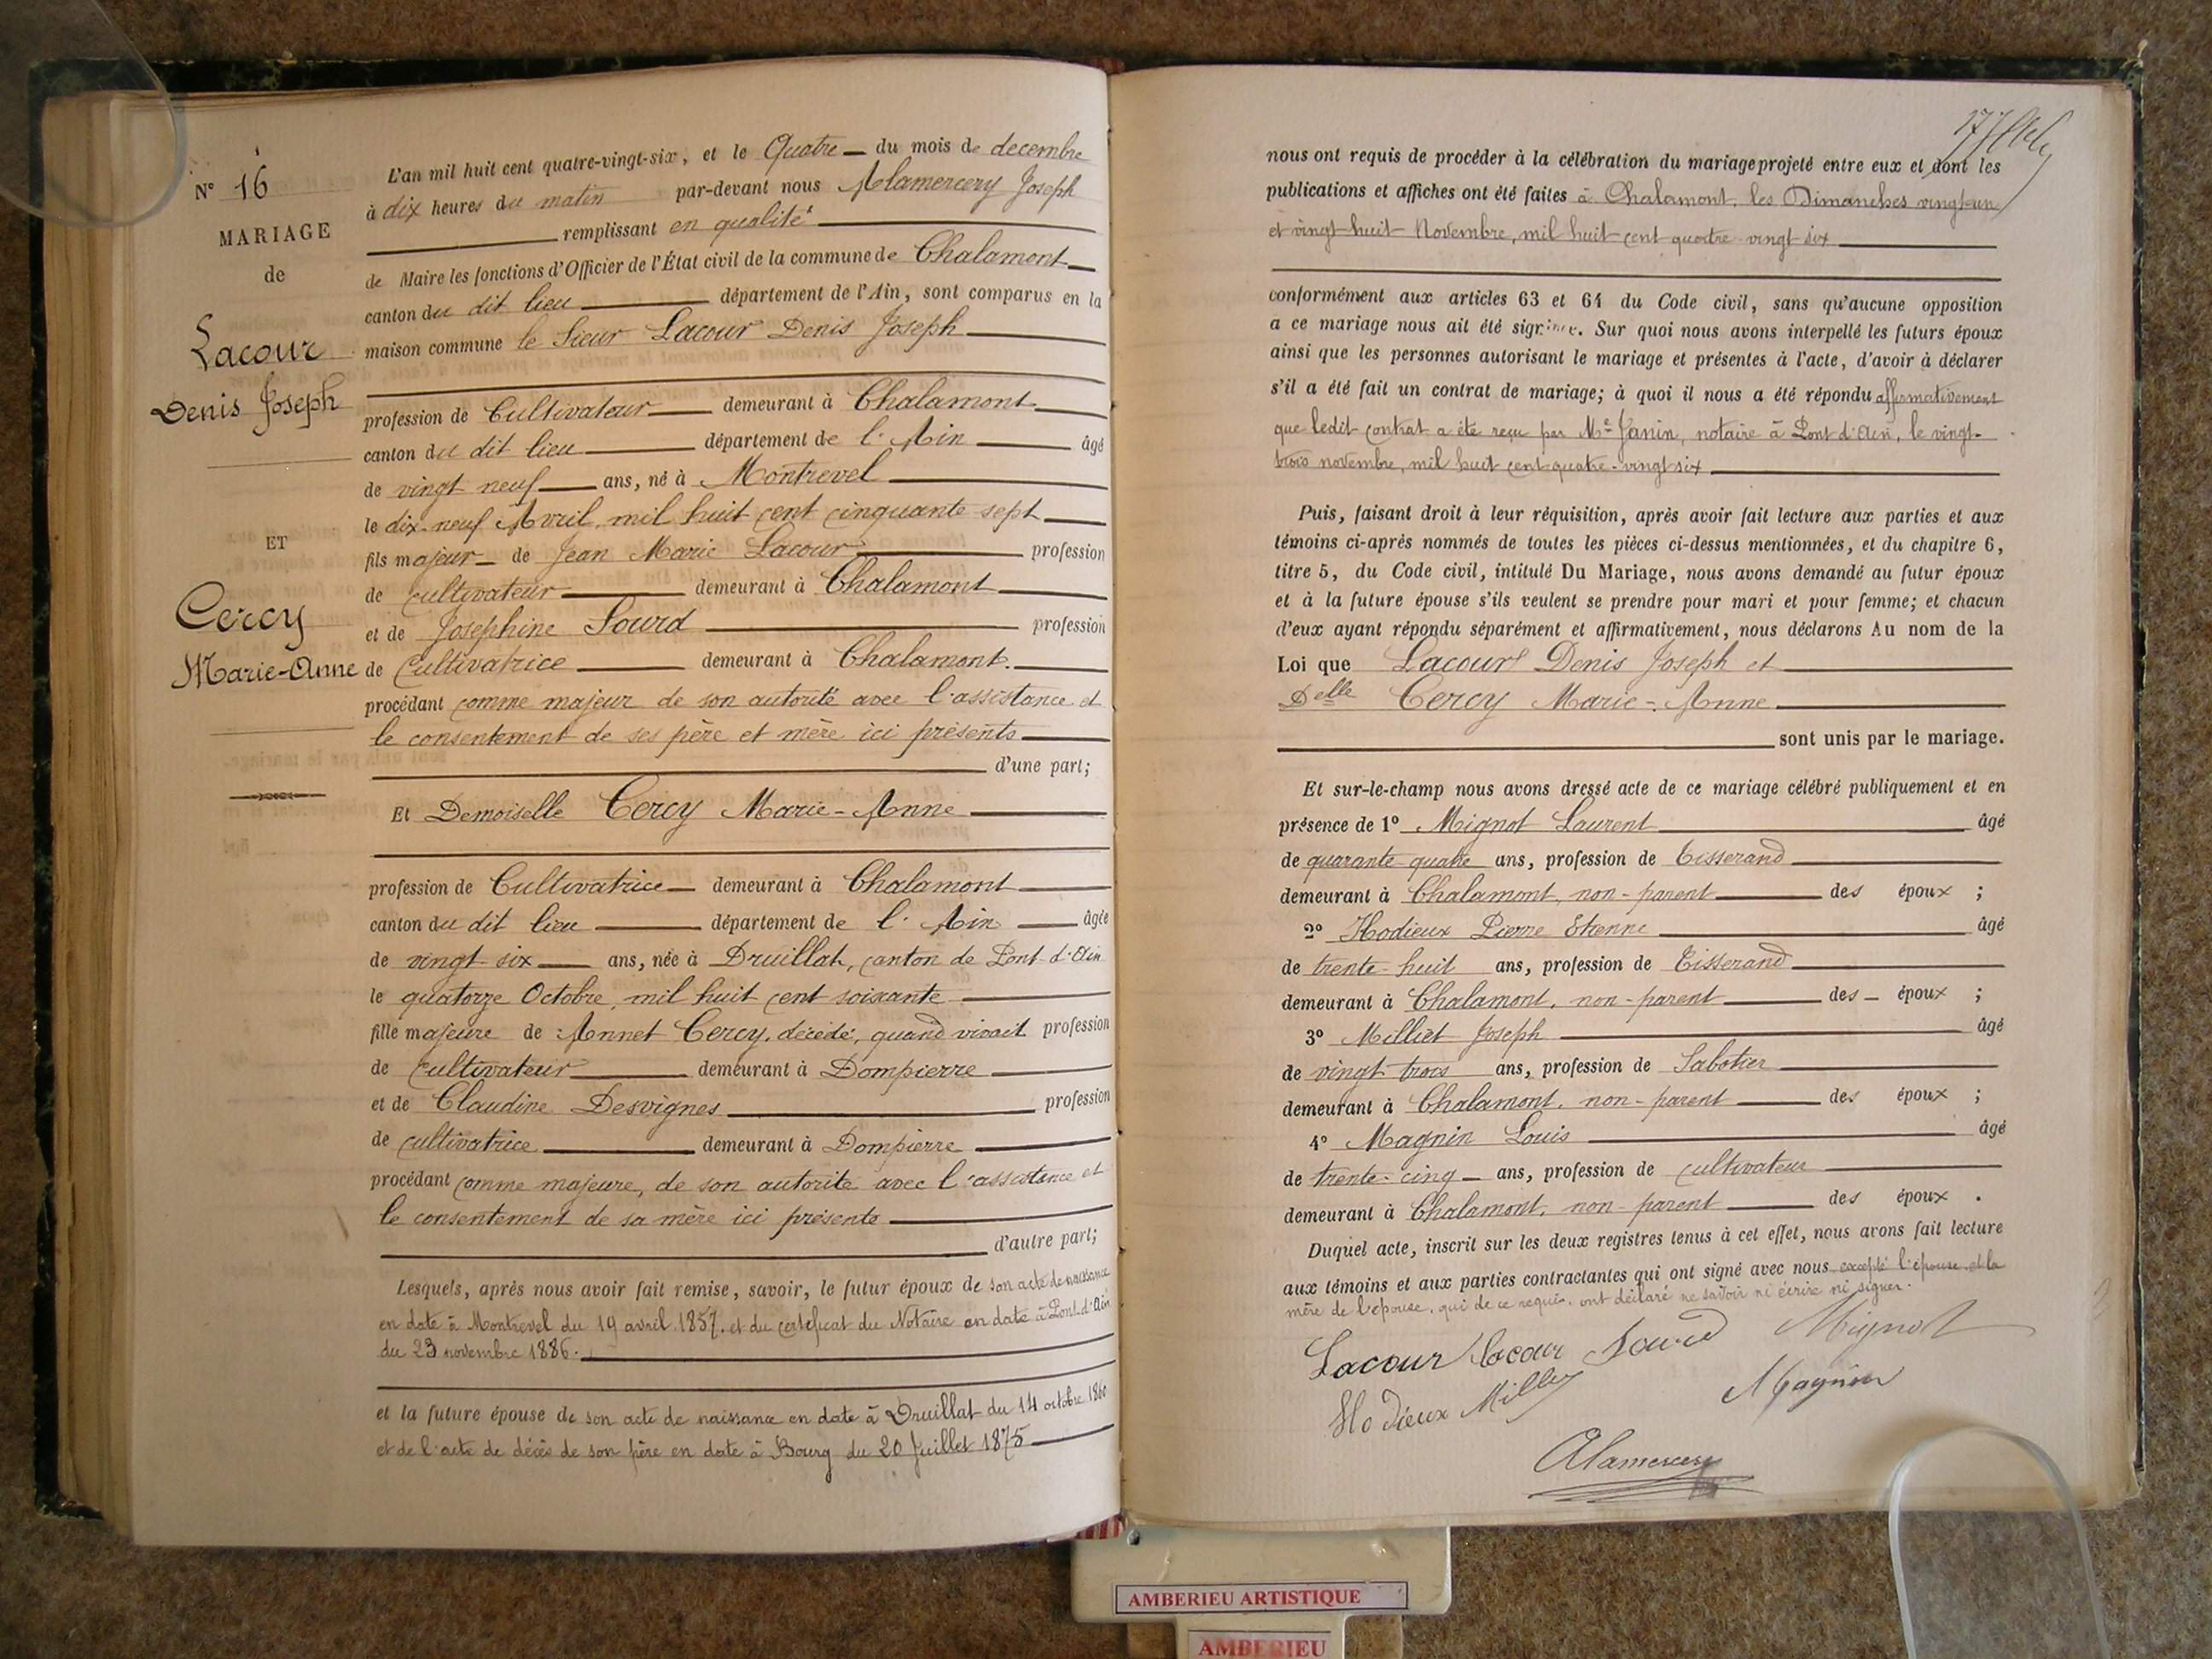 N° 16
MARIAGE
de
Lacour
Denis Joseph
ET
Cercy
Marie-Anne
L'an mil huit cent quatre-vingt-six, et le Quatre du mois de decembre
à dix heures du matin par-devant nous Alamercery Joseph
remplissant en qualité
de Maire les fonctions d'Officier de l'État civil de la commune de Chalamont
canton du dit lieu département de l'Ain, sont comparus en la
maison commune le Sieur Lacour Denis Joseph
profession de Cultivateur demeurant à Chalamont
canton du dit lieu département de l'Ain âgé
de vingt neuf ans, né à Montrevel
le dix-neuf Avril, mil huit cent cinquante sept
fils majeur de Jean Marie Lacour profession
de cultivateur demeurant à Chalamont
et de Josephine Sourd profession
de Cultivatrice demeurant à Chalamont.
procédant comme majeur de son autorité avec l'assistance et
le consentement de ses père et mère ici présents
d'une part;
Et Demoiselle Cercy Marie-Anne
profession de Cultivatrice demeurant à Chalamont
canton du dit lieu département de l'Ain âgée
de vingt-six ans, née à Druillat, canton de Pont-d'Ain
le quatorze Octobre, mil huit cent soixante
fille majeure de Annet Cercy, décédé, quand vivait profession
de cultivateur demeurant à Dompierre
et de Claudine Desvignes profession
de cultivatrice demeurant à Dompierre
procédant comme majeure, de son autorité avec l'assistance et
le consentement de sa mère ici présente
d'autre part;
Lesquels, après nous avoir fait remise, savoir, le futur époux de son acte de naissance
en date à Montrevel du 19 avril 1857. et du certificat du Notaire en date à Pont-d'Ain
du 23 novembre 1886.
et la future épouse de son acte de naissance en date à Druillat du 14 octobre 1860
et de l'acte de décès de son père en date à Bourg du 20 Juillet 1875
nous ont requis de procéder à la célébration du mariage projeté entre eux et dont les
publications et affiches ont été faites à Chalamont, les Dimanches vingt-un
et vingt-huit Novembre, mil huit cent quatre-vingt six
conformément aux articles 63 et 64 du Code civil, sans qu'aucune opposition
a ce mariage nous ait été signifiée. Sur quoi nous avons interpellé les futurs époux
ainsi que les personnes autorisant le mariage et présentes à l'acte, d'avoir à déclarer
s'il a été fait un contrat de mariage; à quoi il nous a été répondu affirmativement
que ledit contrat a été reçu par Me Janin, notaire à Pont-d'Ain, le vingt-
trois novembre, mil huit cent quatre-vingt six
Puis, faisant droit à leur réquisition, après avoir fait lecture aux parties et aux
témoins ci-après nommés de toutes les pièces ci-dessus mentionnées, et du chapitre 6,
titre 5, du Code civil, intitulé Du Mariage, nous avons demandé au futur époux
et à la future épouse s'ils veulent se prendre pour mari et pour femme; et chacun
d'eux ayant répondu séparément et affirmativement, nous déclarons Au nom de la
Loi que Lacour Denis Joseph et
Delle Cercy Marie-Anne
sont unis par le mariage.
Et sur-le-champ nous avons dressé acte de ce mariage célébré publiquement et en
présence de 1° Mignot Laurent âgé
de quarante-quatre ans, profession de tisserand
demeurant à Chalamont, non-parent des époux ;
2° Hodieux Pierre Etienne âgé
de trente-huit ans, profession de Tisserand
demeurant à Chalamont, non-parent des époux ;
3° Milliet Joseph âgé
de vingt trois ans, profession de Sabotier
demeurant à Chalamont, non-parent des époux ;
4° Magnin Louis âgé
de trente-cinq ans, profession de cultivateur
demeurant à Chalamont, non-parent des époux .
Duquel acte, inscrit sur les deux registres tenus à cet effet, nous avons fait lecture
aux témoins et aux parties contractantes qui ont signé avec nous excepté l'épouse et la
mère de l'épouse, qui de ce requis, ont déclaré ne savoir ni écrire ni signer.
Lacour Lacour Sourd Mignot
Hodieux Milliet Magnin
Alamercery
AMBERIEU ARTISTIQUE
AMBERIEU